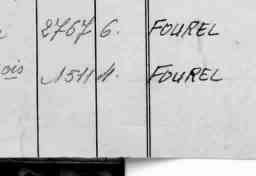 2767 6. FOUREL
ois 1511 4. FOUREL